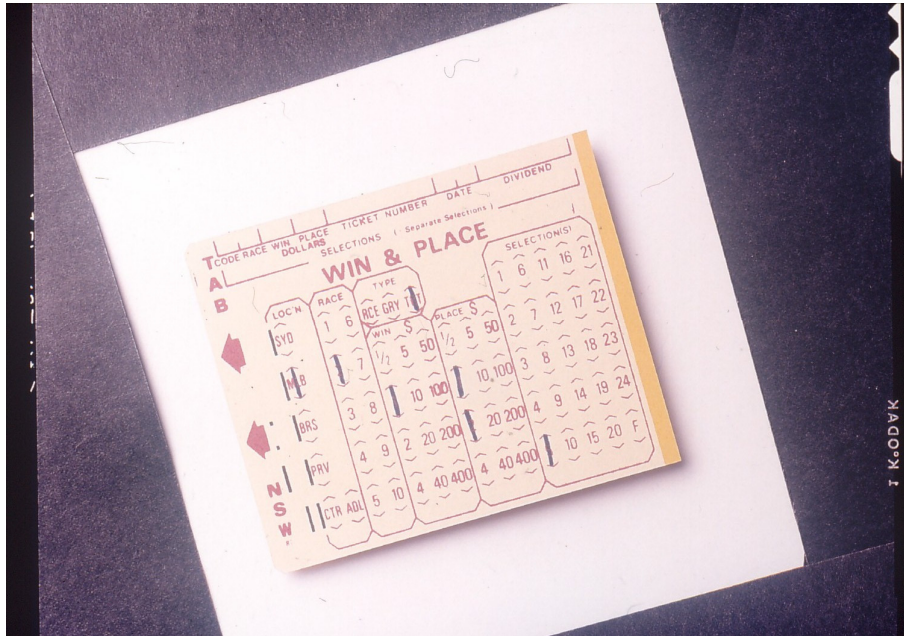 CODE RACE WIN PLACE TICKET NUMBER DATE DIVIDEND
DOLLARS SELECTIONS ( Separate Selections )
TAB
WIN & PLACE
NSW
LOC'N
SYD
BRS
PRV
CTR ADL
RACE
1 6
7
3 8
4 9
5 10
TYPE
RCE GRY
WIN $
1/2 5 50
10 100
2 20 200
4 40 400
PLACE $
1/2 5 50
10 100
20 200
4 40 400
SELECTION(S)
1 6 11 16 21
2 7 12 17 22
3 8 13 18 23
4 9 14 19 24
10 15 20 F
KODAK